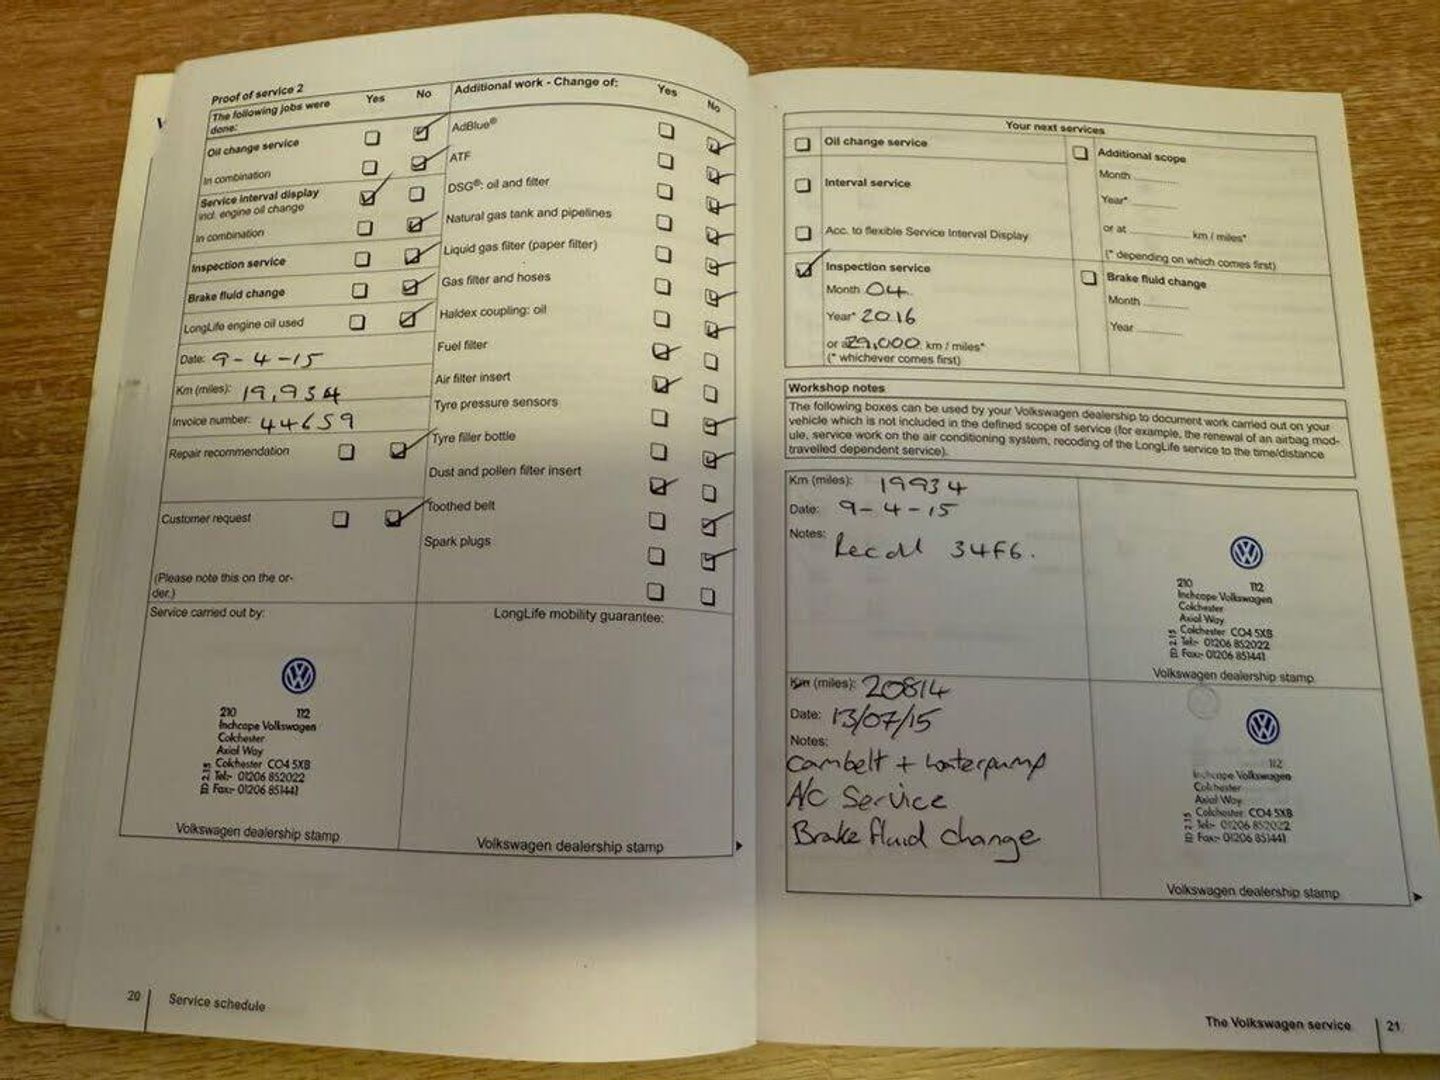 Proof of service 2
The following jobs were done: Yes No
Oil change service
In combination
Service interval display
incl. engine oil change
In combination
Inspection service
Brake fluid change
LongLife engine oil used
Date: 9-4-15
Km (miles): 19,934
Invoice number: 44659
Repair recommendation
Customer request
(Please note this on the or-
der.)
Additional work - Change of: Yes No
AdBlue®
ATF
DSG®: oil and filter
Natural gas tank and pipelines
Liquid gas filter (paper filter)
Gas filter and hoses
Haldex coupling: oil
Fuel filter
Air filter insert
Tyre pressure sensors
Tyre filler bottle
Dust and pollen filter insert
Toothed belt
Spark plugs
Service carried out by:
210 112
Inchcape Volkswagen
Colchester
Axial Way
Colchester CO4 5XB
Tel:- 01206 852022
Fax:- 01206 851441
ID 2.15
Volkswagen dealership stamp
LongLife mobility guarantee:
Volkswagen dealership stamp
20 Service schedule
Your next services
Oil change service
Interval service
Acc. to flexible Service Interval Display
Inspection service
Month 04
Year* 2016
or at 29,000 km / miles*
(* whichever comes first)
Additional scope
Month
Year*
or at km / miles*
(* depending on which comes first)
Brake fluid change
Month
Year
Workshop notes
The following boxes can be used by your Volkswagen dealership to document work carried out on your
vehicle which is not included in the defined scope of service (for example, the renewal of an airbag mod-
ule, service work on the air conditioning system, recoding of the LongLife service to the time/distance
travelled dependent service).
Km (miles): 19934
Date: 9-4-15
Notes: Recall 34F6.
210 112
Inchcape Volkswagen
Colchester
Axial Way
Colchester CO4 5XB
Tel:- 01206 852022
Fax:- 01206 851441
ID 2.15
Volkswagen dealership stamp
Km (miles): 20814
Date: 13/07/15
Notes:
Cambelt + Waterpump
A/C Service
Brake fluid change
112
Inchcape Volkswagen
Colchester
Axial Way
Colchester CO4 5XB
Tel:- 01206 852022
Fax:- 01206 851441
ID 2.15
Volkswagen dealership stamp
The Volkswagen service 21